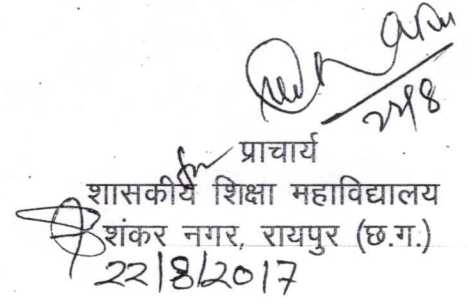 22/8
प्राचार्य
शासकीय शिक्षा महाविद्यालय
शंकर नगर, रायपुर (छ.ग.)
22/8/2017